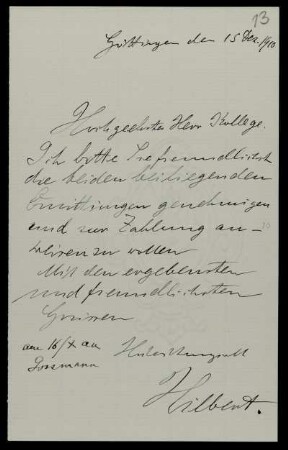 13
Göttingen den 15 Dez. 1910
Hochgeehrter Herr Kollege.
Ich bitte Sie freundlichst
die beiden beiliegenden
Quittungen genehmigen
und zur Zahlung an-
weisen zu wollen
Mit den ergebensten
und freundlichsten
Grüssen
Hochachtungsvoll
Hilbert.
am 16/X an